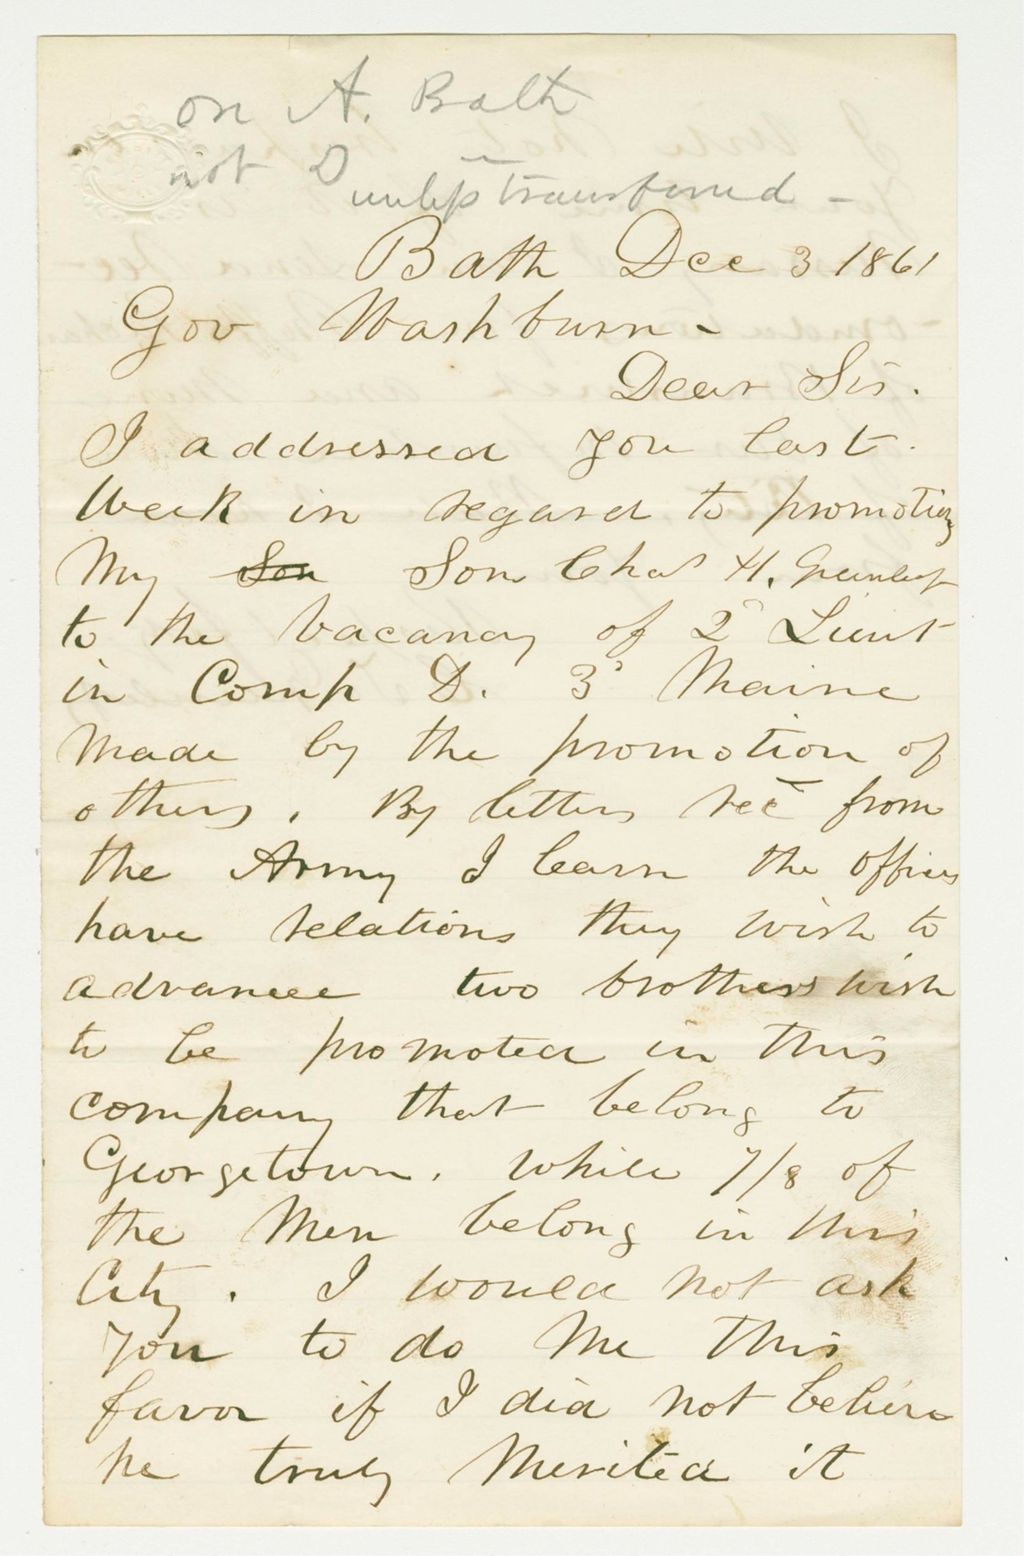 on A. Bath
not D
unless transferred -
Bath Dec 3 1861
Gov Washburn -
Dear Sir.
I addressed you last
Week in regard to promoting
My Son Son Chas H. Greenleaf
to the vacancy of 2d Lieut
in Comp D. 3d Maine
Made by the promotion of
others. By letters rec from
the Army I learn the officers
have relations they wish to
advancee two brothers wish
to be promoted in this
company that belong to
Georgetown. while 7/8 of
the Men belong in this
City. I would not ask
you to do Me This
favor if I did not believe
he truly Merited it